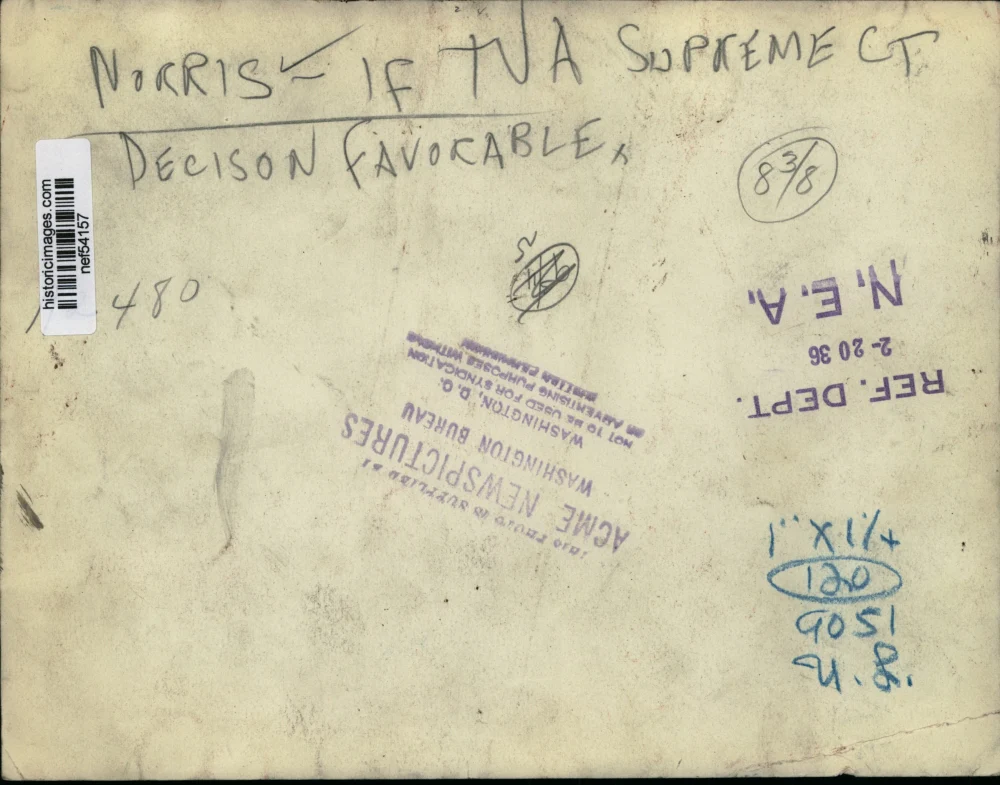 NORRIS – IF TVA SUPREME CT
DECISON FAVORABLE
8 3/8
historicimages.com
nef54157
480
N.E.A.
2-20 36
REF. DEPT.
THIS PHOTO IS SUPPLIED BY
ACME NEWSPICTURES
WASHINGTON BUREAU
WASHINGTON, D. C.
NOT TO BE USED FOR SYNDICATION
OR ADVERTISING PURPOSES WITHOUT
120
9051